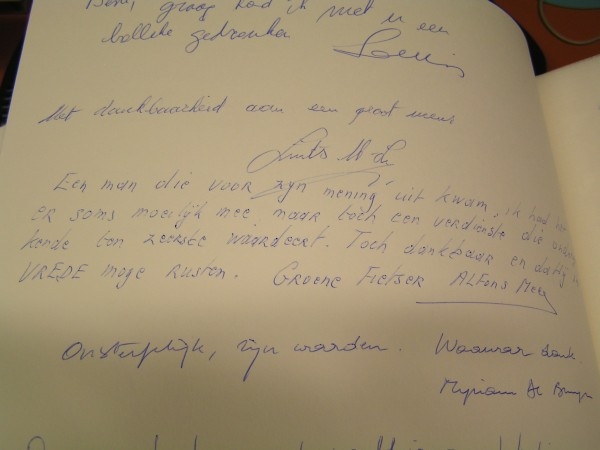 graag had ik met u een
bolleke gedronken
Met dankbaarheid aan een groot mens
Een man die voor zijn mening uit kwam, ik had het
er soms moeilijk mee maar toch een verdienste die
kende ten zeerste waardeert. Toch dankbaar en dat hij in
VREDE moge rusten. Groene Fietser Alfons
Onsterfelijk, zijn woorden. Waarvan dank.
Myriam De